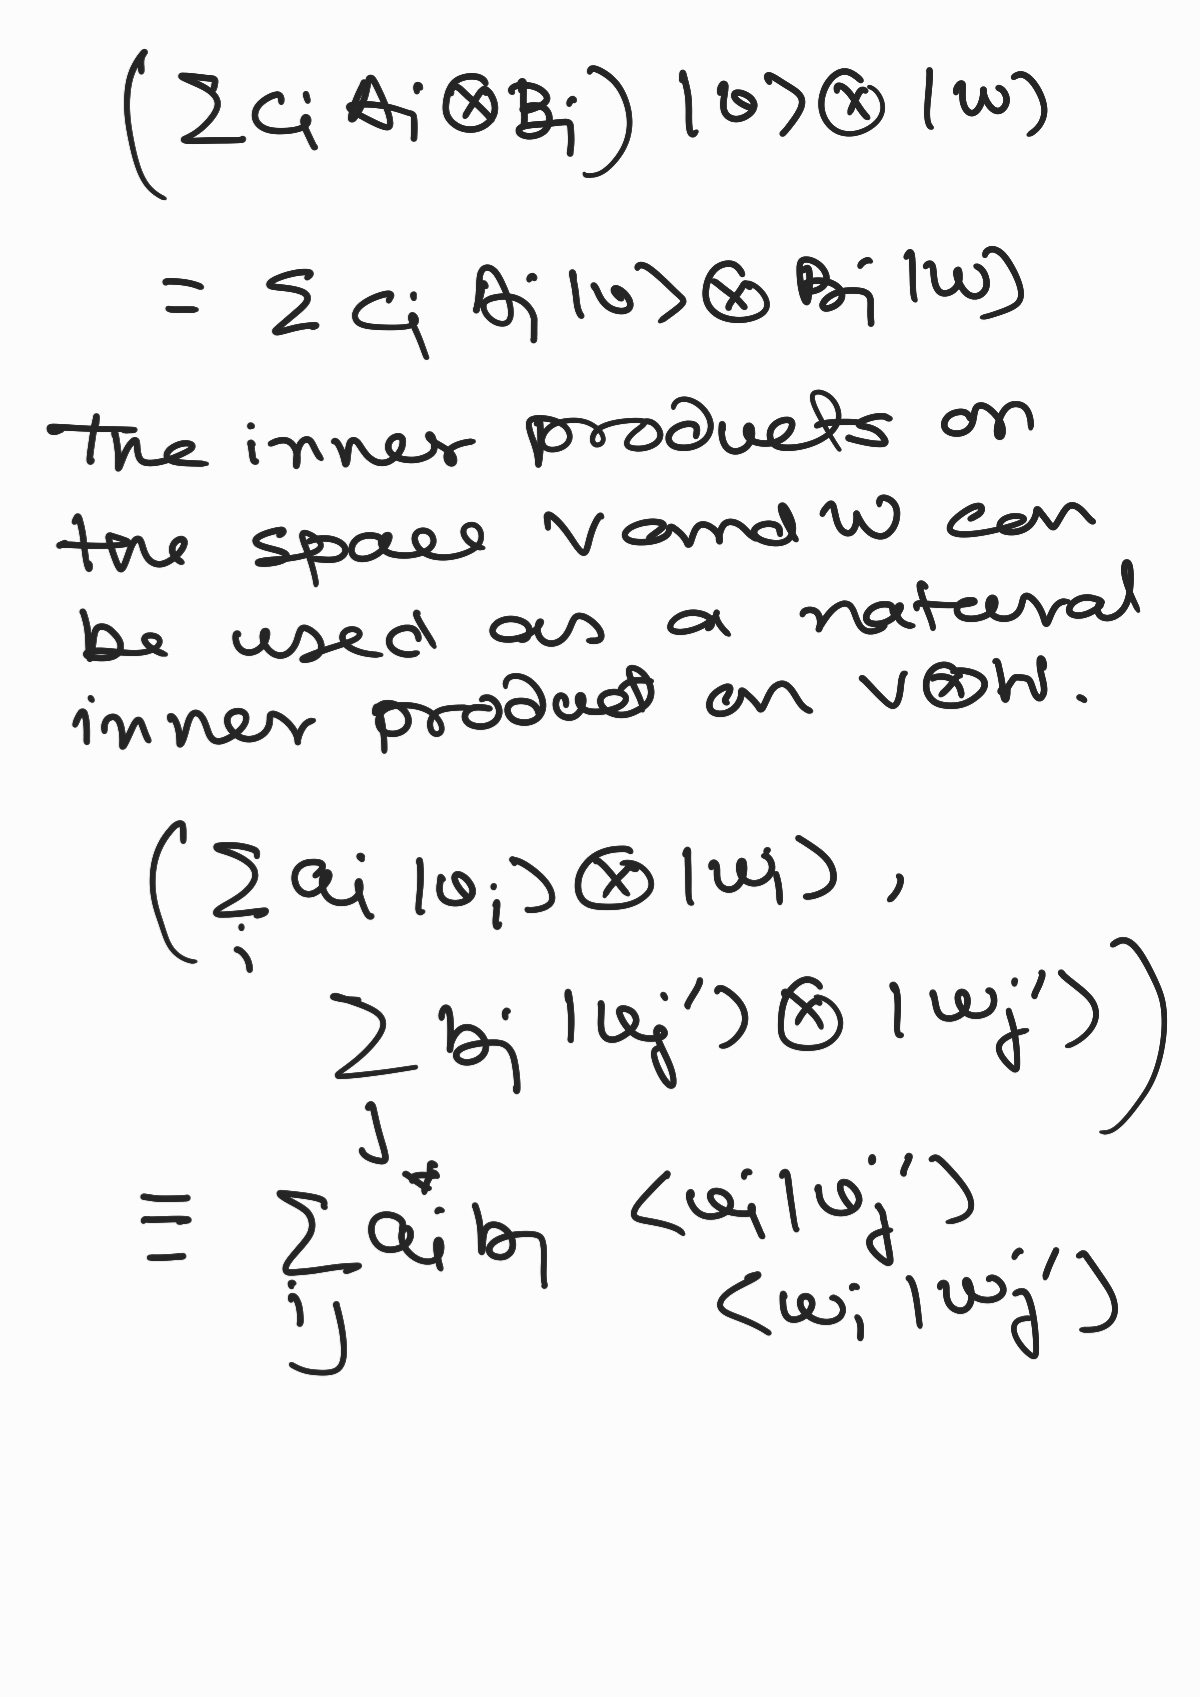 (Σ cᵢ Aᵢ ⊗ Bᵢ) |v> ⊗ |w>
= Σ cᵢ Aᵢ |v> ⊗ Bᵢ |w>
The inner products on
the space V and W can
be used as a natural
inner product on V⊗W.
(Σᵢ aᵢ |vᵢ> ⊗ |wᵢ> ,
Σⱼ bⱼ |vⱼ'> ⊗ |wⱼ'>)
≡ Σᵢⱼ aᵢ* bⱼ <vᵢ|vⱼ'>
<wᵢ|wⱼ'>